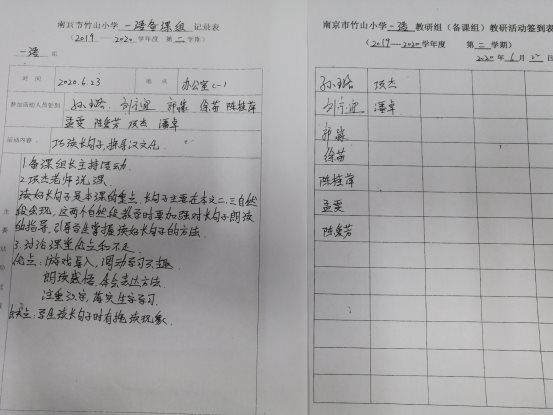 南京市竹山小学 一语备课组 记录表
(2019—2020学年度 第二学期)
一语 组
时间 2020.6.23 地点 办公室(一)
参加活动人员签到 孙璐 刘宁宜 郭 徐苗 陈桂萍
孟雯 陈爱芳 项杰 潘卓
活动内容 巧读长句子,推广汉文化.
1.备课组长主持活动.
2.项杰老师说课.
读好长句子是本课的重点,长句子主要在本文二、三自然
段出现,这两个自然段教学时要加强对长句子朗读
的指导,引导学生掌握读好长句子的方法.
3.讨论课堂优点和不足.
优点:游戏导入,调动学习兴趣.
朗读感悟,体会表达方法.
注重汉字,落实生字学习.
缺点:学生读长句子时有拖读现象.
南京市竹山小学一语教研组(备课组)教研活动签到表
(2019—2020学年度 第二学期)
2020年6月 日
孙璐 项杰
刘宁宜 潘卓
郭
徐苗
陈桂萍
孟雯
陈爱芳